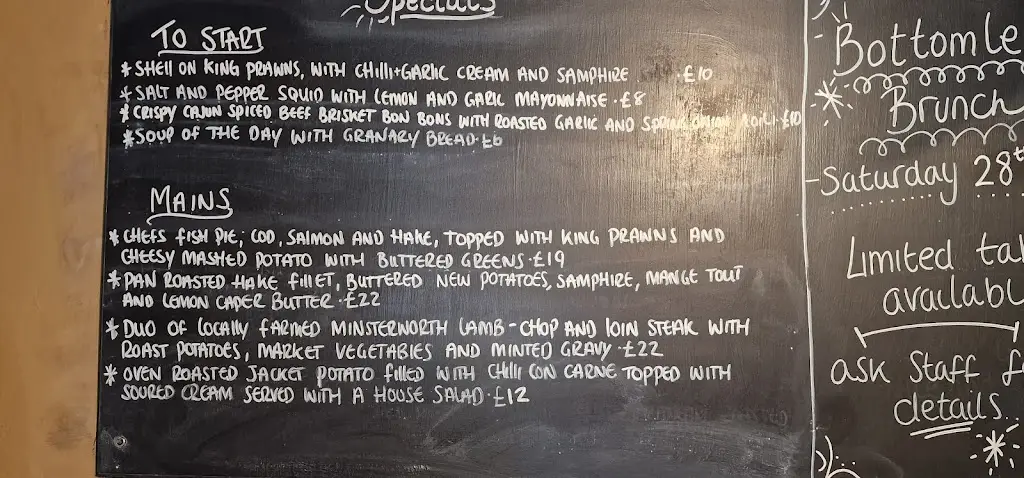 Specials
TO START
* SHELL ON KING PRAWNS, WITH CHILLI+GARLIC CREAM AND SAMPHIRE .£10
* SALT AND PEPPER SQUID WITH LEMON AND GARLIC MAYONNAISE .£8
* CRISPY CAJUN SPICED BEEF BRISKET BON BONS WITH ROASTED GARLIC AND SPRING ONION AOILI .£10
* SOUP OF THE DAY WITH GRANARY BREAD.£6
MAINS
* CHEFS FISH PIE; COD, SALMON AND HAKE, TOPPED WITH KING PRAWNS AND
CHEESY MASHED POTATO WITH BUTTERED GREENS.£19
* PAN ROASTED HAKE FILLET, BUTTERED NEW POTATOES, SAMPHIRE, MANGE TOUT
AND LEMON CAPER BUTTER.£22
* DUO OF LOCALLY FARMED MINSTERWORTH LAMB-CHOP AND LOIN STEAK WITH
ROAST POTATOES, MARKET VEGETABLES AND MINTED GRAVY.£22
* OVEN ROASTED JACKET POTATO FILLED WITH CHILLI CON CARNE TOPPED WITH
SOURED CREAM SERVED WITH A HOUSE SALAD.£12
Bottomle
Brunch
-Saturday 28th
Limited ta
availabl
ask Staff f
details..